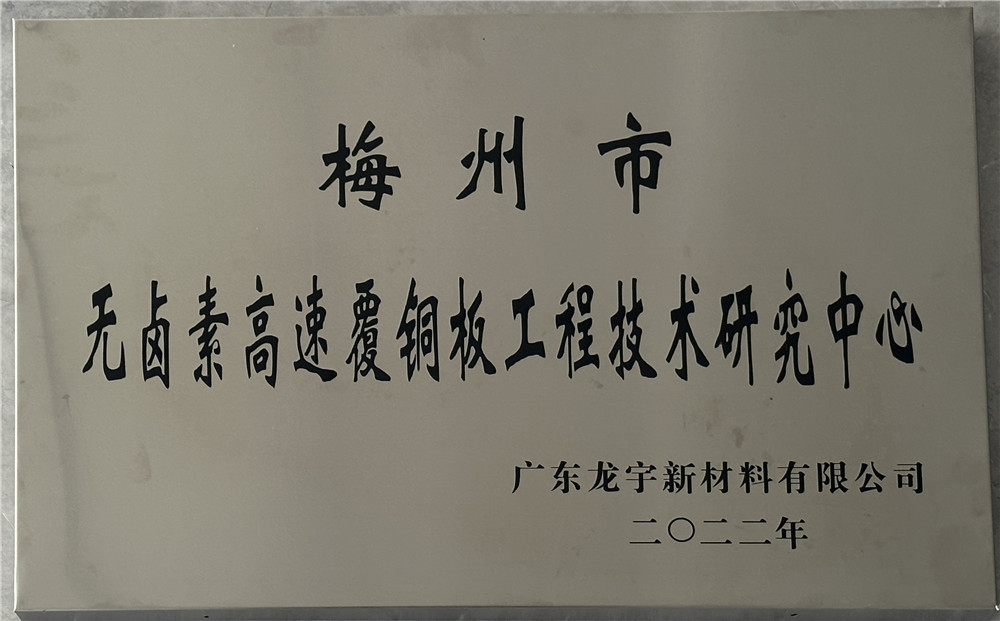 梅州市
无卤素高速覆铜板工程技术研究中心
广东龙宇新材料有限公司
二〇二二年